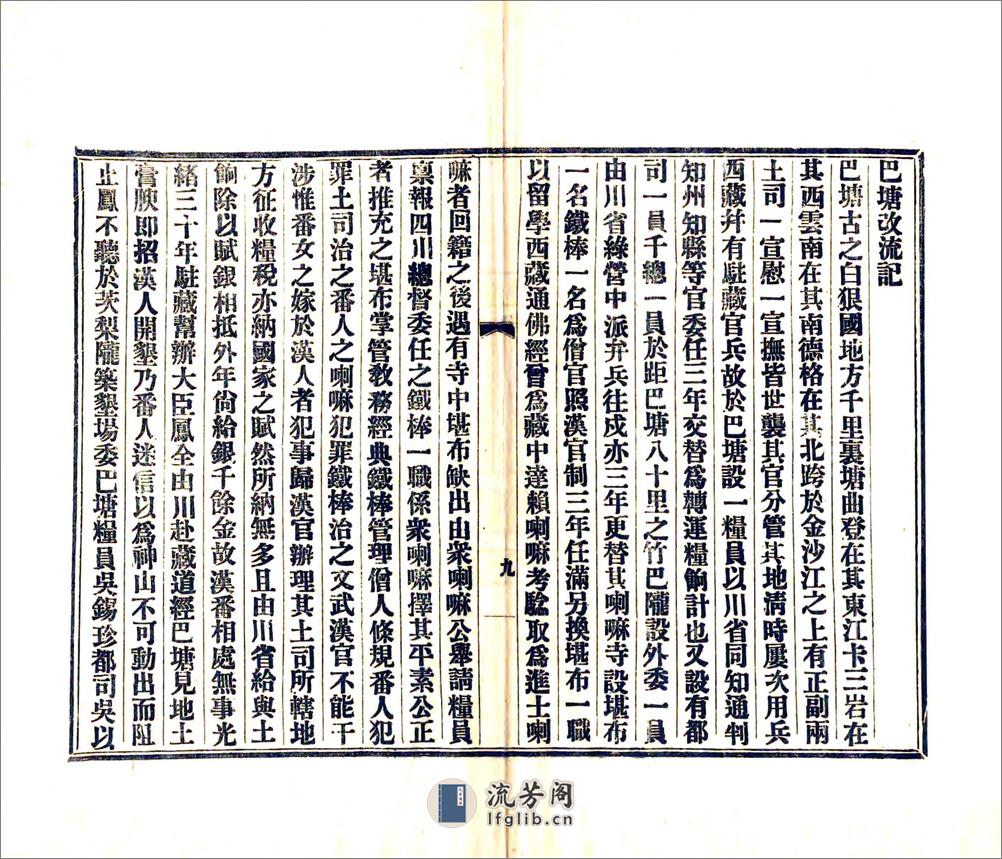 巴塘改流記
巴塘古之白狼國地方千里裏塘曲登在其東江卡三岩在
其西雲南在其南德格在其北跨於金沙江之上有正副兩
土司一宣慰一宣撫皆世襲其官分管其地淸時屢次用兵
西藏幷有駐藏官兵故於巴塘設一糧員以川省同知通判
知州知縣等官委任三年交替爲轉運糧餉計也又設有都
司一員千總一員於距巴塘八十里之竹巴隴設外委一員
由川省綠營中派弁兵往戍亦三年更替其喇嘛寺設堪布
一名鐵棒一名爲僧官照漢官制三年任滿另換堪布一職
以留學西藏通佛經曾爲藏中達賴喇嘛考騐取爲進士喇
九
嘛者回籍之後遇有寺中堪布缺出由衆喇嘛公舉請糧員
稟報四川總督委任之鐵棒一職係衆喇嘛擇其平素公正
者推充之堪布掌管敎務經典鐵棒管理僧人條規番人犯
罪土司治之番人之喇嘛犯罪鐵棒治之文武漢官不能干
涉惟番女之嫁於漢人者犯事歸漢官辦理其土司所轄地
方征收糧稅亦納國家之賦然所納無多且由川省給與土
餉除以賦銀相抵外年尙給銀千餘金故漢番相處無事光
緒三十年駐藏幫辦大臣鳳全由川赴藏道經巴塘見地土
膏腴卽招漢人開墾乃番人迷信以爲神山不可動出而阻
止鳳不聽於茨梨隴築墾場委巴塘糧員吳錫珍都司吳以
流芳阁
lfglib.cn